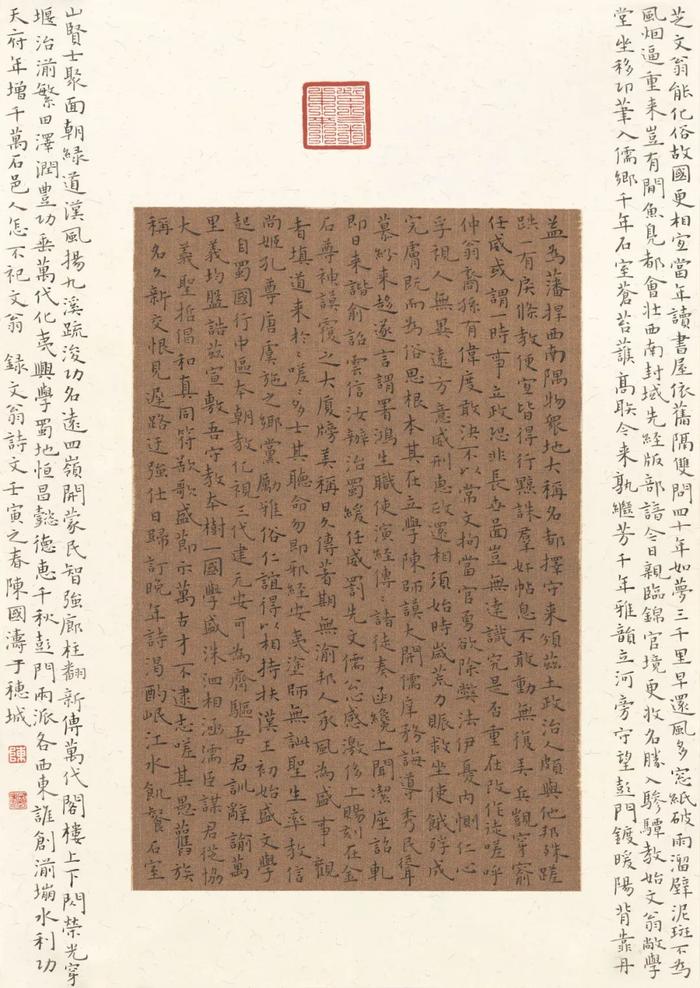 芝文翁能化俗故國更相宜當年讀書屋依舊隔雙問四十年如夢三千里早還風多窓紙破雨溜壁泥斑不為
風烟逼重来豈有開魚鳧都會壯西南封域先経版部諳今日親臨錦官境更牧名勝入驂驔教始文翁敞學
堂坐移邛筆入儒鄉千年石室蒼苔護髙躅今来孰繼芳千年雅韻立河旁守望彭門鍍暖陽背靠丹
蓋為藩捍西南隅物衆地大稱名都擇守来頒茲土政治人頗與他邦殊蹉
跌一有戾條教便宜皆得行黥誅羣奸帖息不敢動無復弄兵覬穿窬
任威或謂一時事立政恐非長世啚豈無逹識究是否重在改作徒嗟呼
仲翁裔孫有偉度敢決不以常文拘當官勇欲除弊法伊憂内惻仁心
孚視人無異遠方意威刑惠政還相須始時歲荒力賑救坐使餓殍成
完膚既而為俗思根本其在立學陳師謨大開儒庠務誨導秀民聳
慕紛来趍遂言謂署鴻生職使演経傳諸徒奏函纔上聞潔座詔軋
即日来諧俞詔雲信汝辦治蜀緩任威罰先文儒公感激修上賜刻在金
石尊神謨寢之大厦牓美稱日久傳著期無渝邦人承風為盛事觀
者填道来於於嗟嗟多士其聽命勿即邪経安夷塗師無訕聖生率教信
尚姬孔尊唐虞施之鄉黨勵雅俗仁誼得以相持扶漢王初始盛文學
起自蜀國行中區本朝教化視三代建元安可為齊驅吾君訓辭諭萬
里義均盤誥茲宣敷吾守教本樹一國學盛洙泗相涵濡臣謀君從協
大義聖哲倡和真同符歌歌盛節示萬古才不逮志嗟其愚舊族
稱名久新交恨見遲路迂強仕日歸訂晩年詩渴酌岷江水飢餐石室
山賢士聚面朝緑道漢風揚九溪疏浚功名遠四嶺開蒙民智強廊柱翻新傳萬代閣樓上下閃榮光穿
堰治湔繁田澤潤豊功垂萬代化夷興學蜀地恒昌懿徳惠千秋彭門兩派各西東誰創湔堋水利功
天府年增千萬石邑人怎不祀文翁 錄文翁詩文壬寅之春陳國濤于穗城